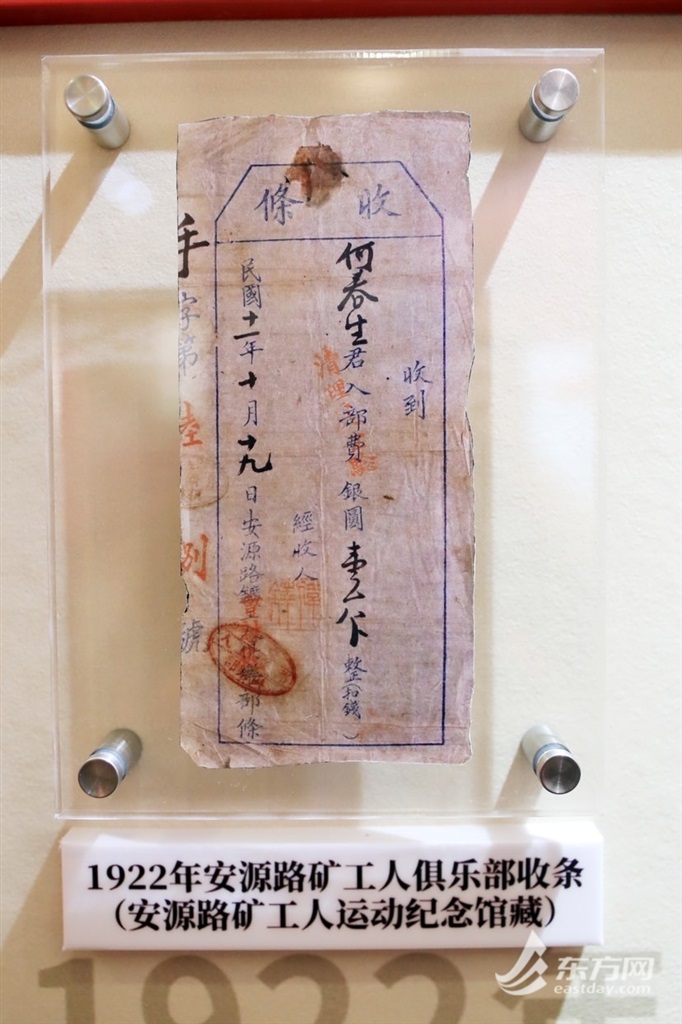 收條
收到
何春生君入部費銀圓壹元 整(扣錢)
經收人
民國十一年十月十九日安源路鑛 俱樂部條
手字第
陸
號
清理
1922年安源路矿工人俱乐部收条
(安源路矿工人运动纪念馆藏)
1922年
东方网
eastday.com